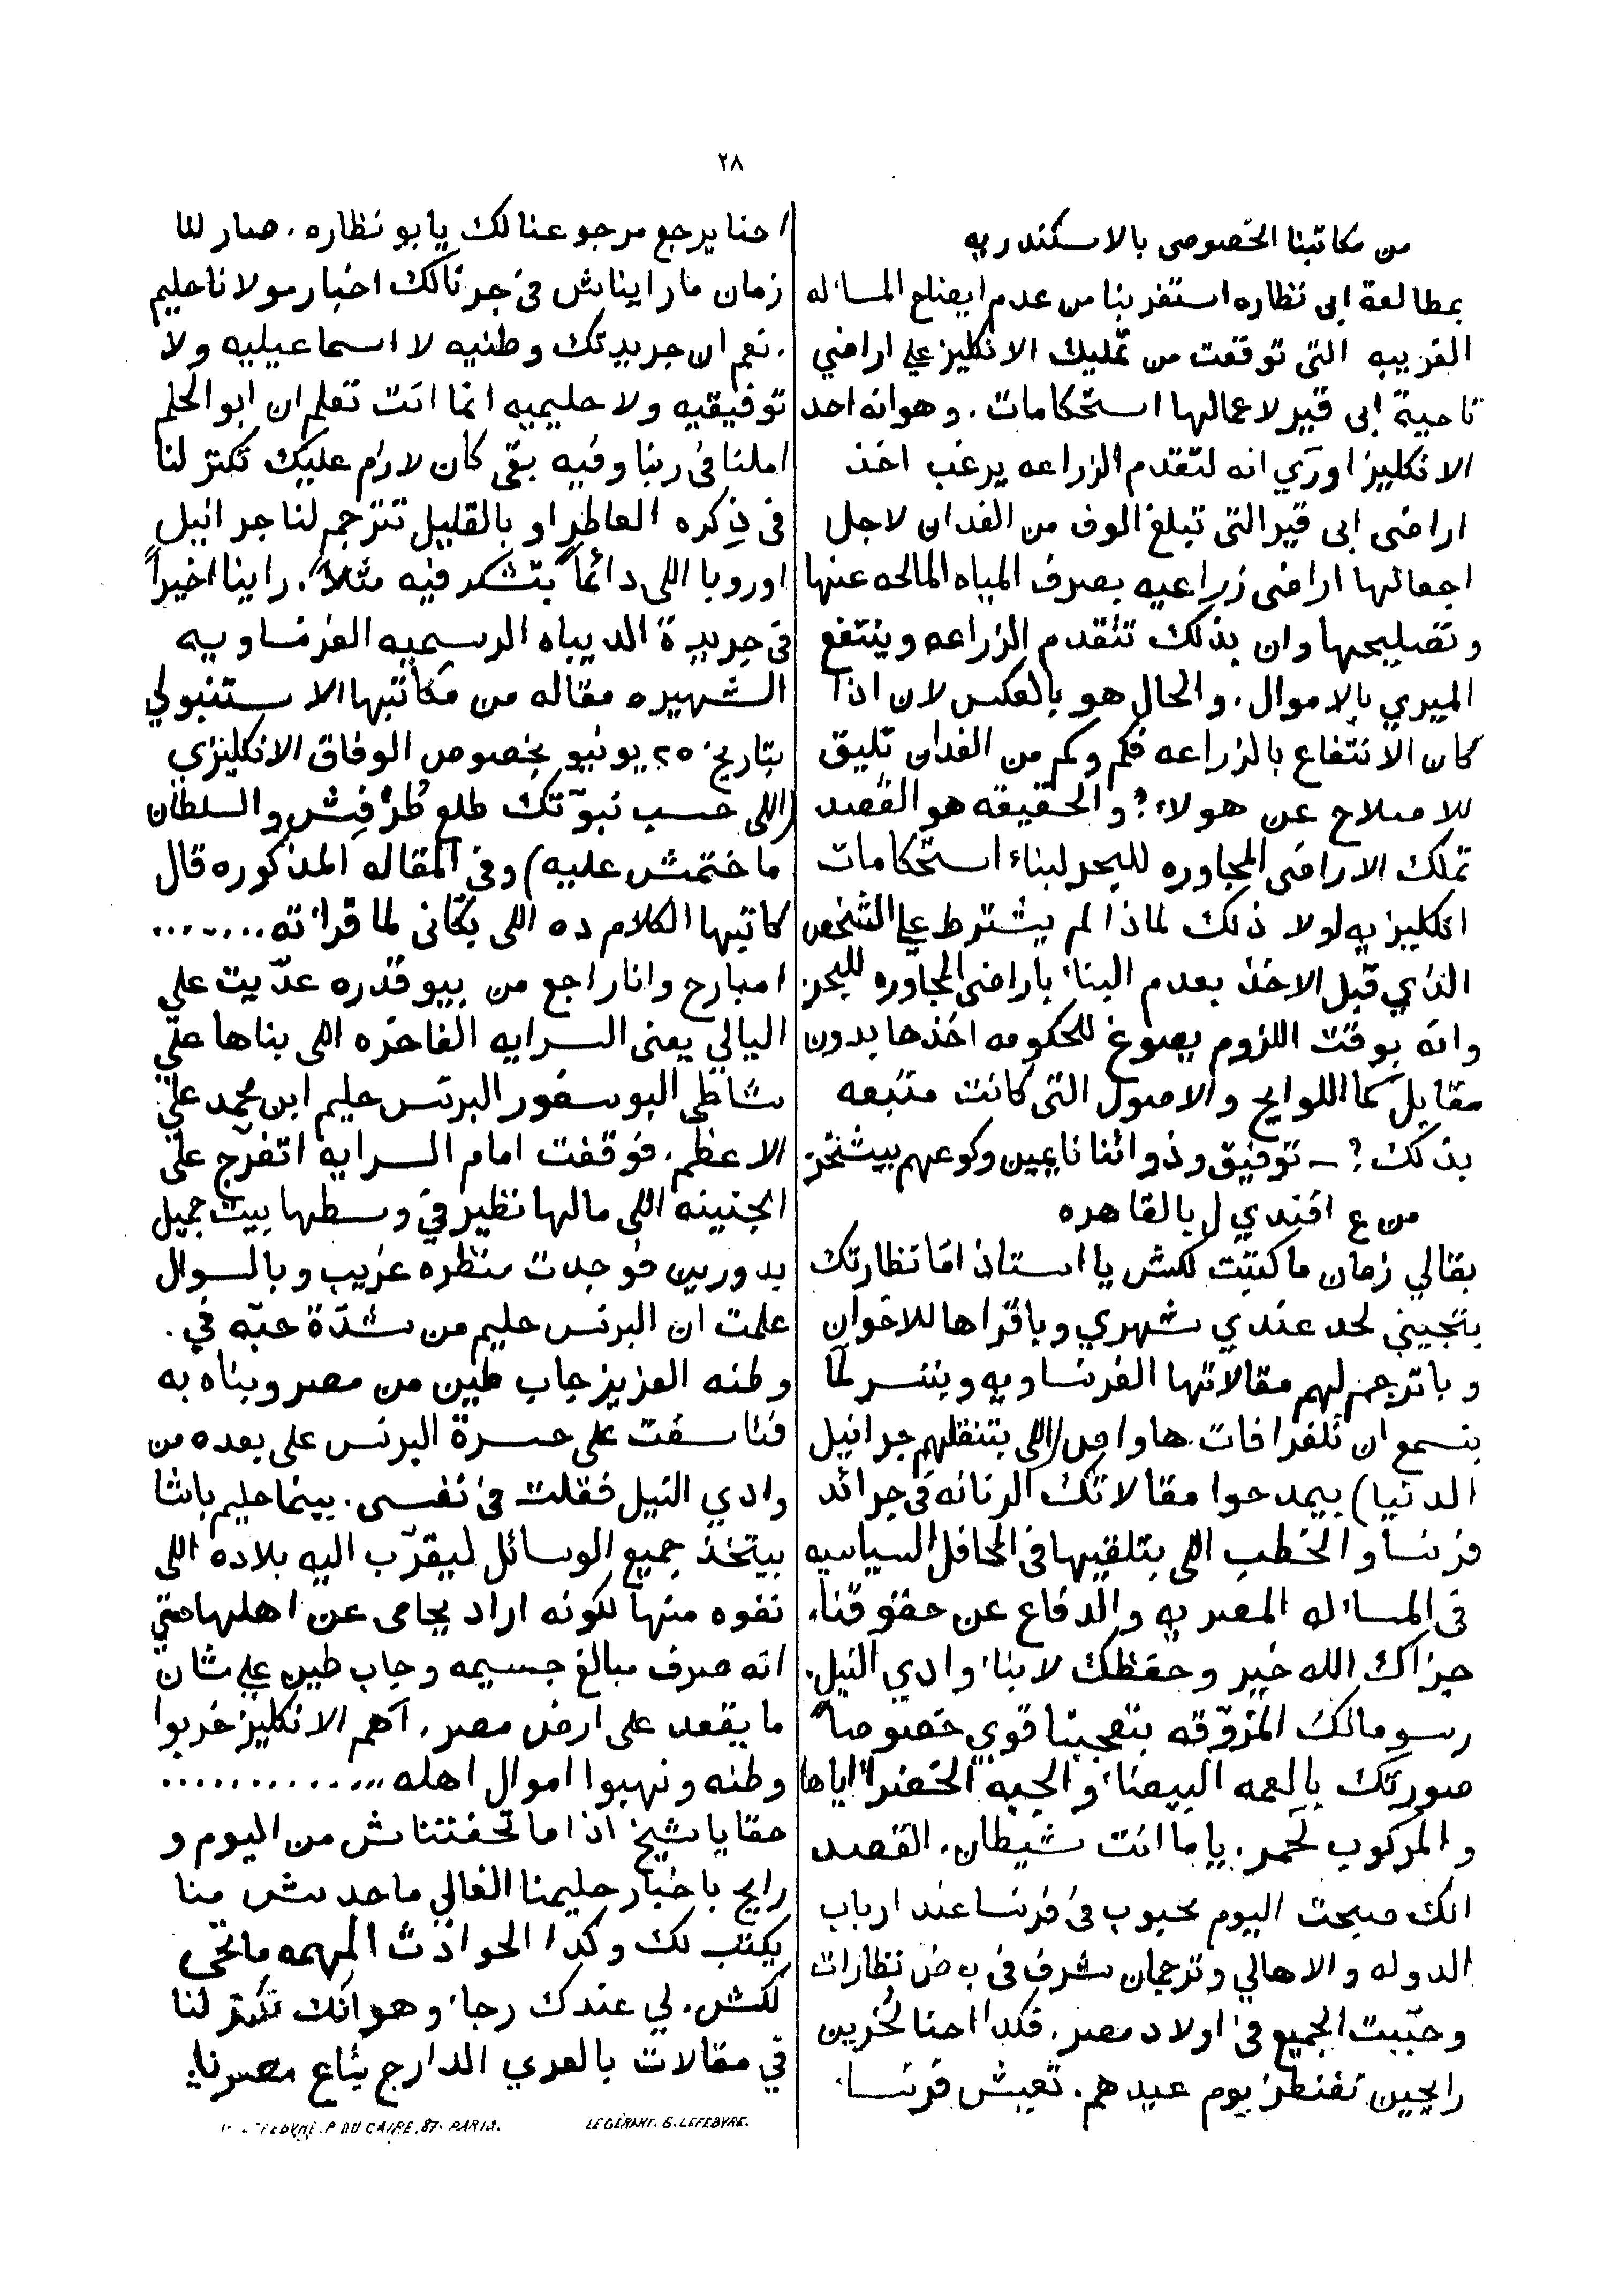 ٢٨
من مكاتبنا الخصوصى بالاسكندريه
بمطالعة ابى نظاره استغربنا من عدم ايضاح المسأله
الغريبه التى توقعت من تمليك الانكليز على اراضي
ناحية ابى قير لاعمالها استحكامات. وهو انه احد
الانكليز اورى انه لتقدم الزراعه يرغب اخذ
اراضى ابى قير التى تبلغ الوف من الفدان لاجل
اجعالها اراضى زراعيه بصرف المياه المالحه عنها
وتصليحها وان بذلك تتقدم الزراعه وينتفع
الميري بالاموال. والحال هو بالعكس لان اذا
كان الانتفاع بالزراعه فكم وكم من الفدان تليق
للاصلاح عن هولاء؟ والحقيقه هو القصد
تملك الاراضى المجاوره للبحر لبناء استحكامات
انكليزيه لولا ذلك لماذا لم يشترط على الشخص
الذي قبل الاخذ بعدم البناء باراضى المجاوره للبحر
وانه بوقت اللزوم يصوغ للحكومه اخذها بدون
مقابل كما اللوايح والاصول التى كانت متبعه
بذلك؟ ـ توفيق وذواتنا نايمين وكوعهم بيشخر
من ع افندي ل بالقاهره
بقالي زمان ما كتبت لكش يا استاذ امّا نظارتك
بتجيني لحد عندي شهري وباقراها للاخوان
وباترجم لهم مقالاتها الفرنساويه وينسر لما
بنسمع ان تلغرافات هاواس (اللى بتنقلهم جرانيل
الدنيا) بيمدحوا مقالاتك الرنانه فى جرائد
فرنسا والخطب اللى بتلقيها فى المحافل السياسيه
فى المسأله المصريه والدفاع عن حقوقنا.
جزاك الله خير وحفظك لابناء وادي النيل.
رسوماتك المزوّقه بتعجبنا قوي خصوصاً
صورتك بالعمه البيضاء والجبه الخضرا اياها
والمركوب لحمر. ياما انت شيطان. القصد
انك صبحت اليوم محبوب فى فرنسا عند ارباب
الدوله والاهالي وترجمان شرف فى بعض نظارات
وحبّيت الجميع فى اولاد مصر. فكدا احنا لخرين
رايحين نفنطز يوم عيدهم. تعيش فرنسا.
احنا يرجع مرجوعنا لك يا بو نظاره. صار لنا
زمان ما رايناش فى جرنالك اخبار مولانا حليم
. نعم ان جريدتك وطنيه لا اسماعيليه ولا
توفيقيه ولا حليميه انما انت تعلم ان ابو الحلم
املنا فى ربنا وفيه بقى كان لازم عليك تكتر لنا
فى ذكره العاطر او بالقليل تترجم لنا جرانيل
اوروبا اللى دائماً بتشكر فيه مثلاً. راينا اخيراً
فى جريدة الديباه الرسميه الفرنساويه
الشهيره مقاله من مكاتبها الاستنبولي
بتاريخ ٢٥ يونيو بخصوص الوفاق الانكليزي
(اللى حسب نبوّتك طلع طُرُفِش والسلطان
ما ختمش عليه) وفى المقاله المذكوره قال
كاتبها الكلام ده اللى بكّانى لما قرائته ........
امبارح وانا راجع من بيوقدره عدّيت على
اليالي يعنى السرايه الفاخره اللى بناها على
شاطى البوسفور البرنس حليم ابن محمد على
الاعظم. فوقفت امام السرايه اتفرّج على
الجنينه اللى مالها نظير فى وسطها بيت جميل
بدورين فوجدت منظره غريب وبالسوال
علمت ان البرنس حليم من شدّة حبّه فى.
وطنه العزيز جاب طين من مصر وبناه به
فتاسفت على حسرة البرنس على بعده من
وادي النيل فقلت فى نفسى. بينما حليم باشا
بيتخذ جميع الوسائل ليقرّب اليه بلاده اللى
نفوه منها لكونه اراد يحامى عن اهلها حتى
انه صرف مبالغ جسيمه وجاب طين على شان
ما يقعد على ارض مصر. آهم الانكليز خربوا
وطنه ونهبوا اموال اهله ............
حقا يا شيخ اذا ما تحفتناش من اليوم و
رايح باخبار حليمنا الغالي ما حدش منا
يكتب لك وكدا الحوادث المهمه ما تجى
لكش. لي عندك رجاء وهو انك تكتر لنا
فى مقالات بالعربي الدارج بتاع مصرنا.
LE GÉRANT. G. LEFEBVRE.
P. DU CAIRE, 87. PARIS.